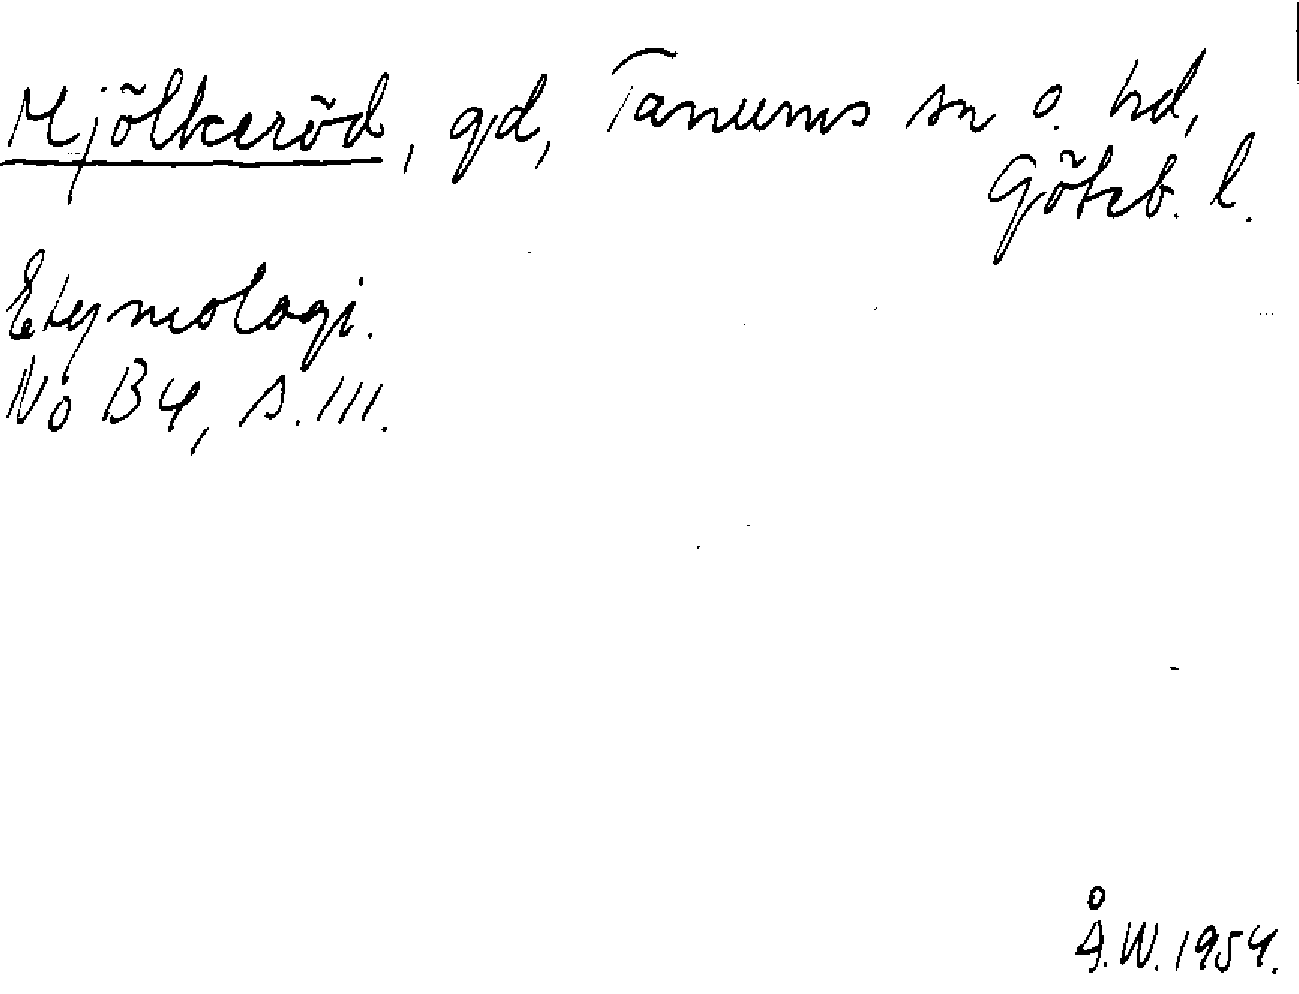 Mjölkeröd, gd, Tanums sn o. hd,
Göteb. l.
Etymologi.
No B4, s. 111.
Å.W. 1954.